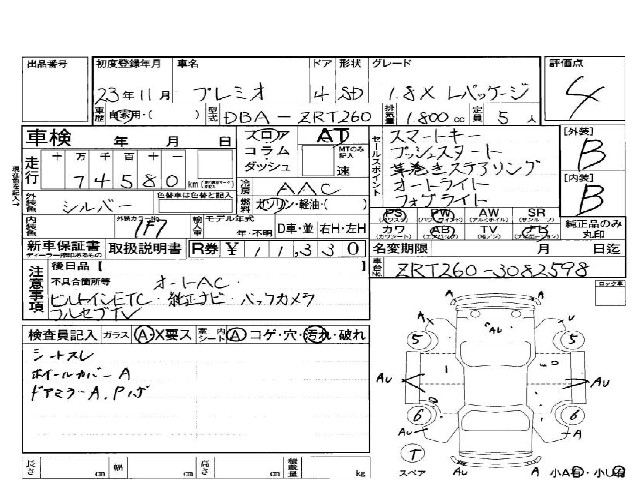 出品番号 初度登録年月 車名 ドア 形状 グレード 評価点
23年11月 プレミオ 4 SD 1.8X Lパッケージ 4
車歴 自家用・( ) 型式 DBA-ZRT260 排気量 1800cc 定員 5人
車検 年 月 日 シフト フロア AT セールスポイント スマートキー [外装]
コラム MTのみ記入 プッシュスタート B
走行 十万 千百十 74580km ダッシュ 速 革巻きステアリング [内装]
冷房 AAC オートライト B
外装色 シルバー 色替車は色替と記入 燃料 ガソリン・軽油・( ) フォグライト
PS PW AW SR 純正品のみ丸印
内装色 外装カラーNo. 1F7 輸入車 モデル年式 年・不明 D車・並 右H・左H カワ AB TV ナビ
新車保証書 取扱説明書 R券 ¥11,330 名変期限 月 日迄
ディーラー捺印あるもの
注意事項 後日品[ ] 車台No. ZRT260-3082598
不具合箇所等 オートAC・
ビルトインETC・純正ナビ・バックカメラ
フルセグTV
検査員記入 ガラス A・X要ス 室内シート A コゲ・穴・汚れ・破れ
シートスレ
ホイールカバーA
ドアミラーA.
A Au A
5 5
Au Au
6 6
Au Au
T
スペア
Au A 小A有・小U有
長さ cm 幅 cm 高さ cm 積載量 kg